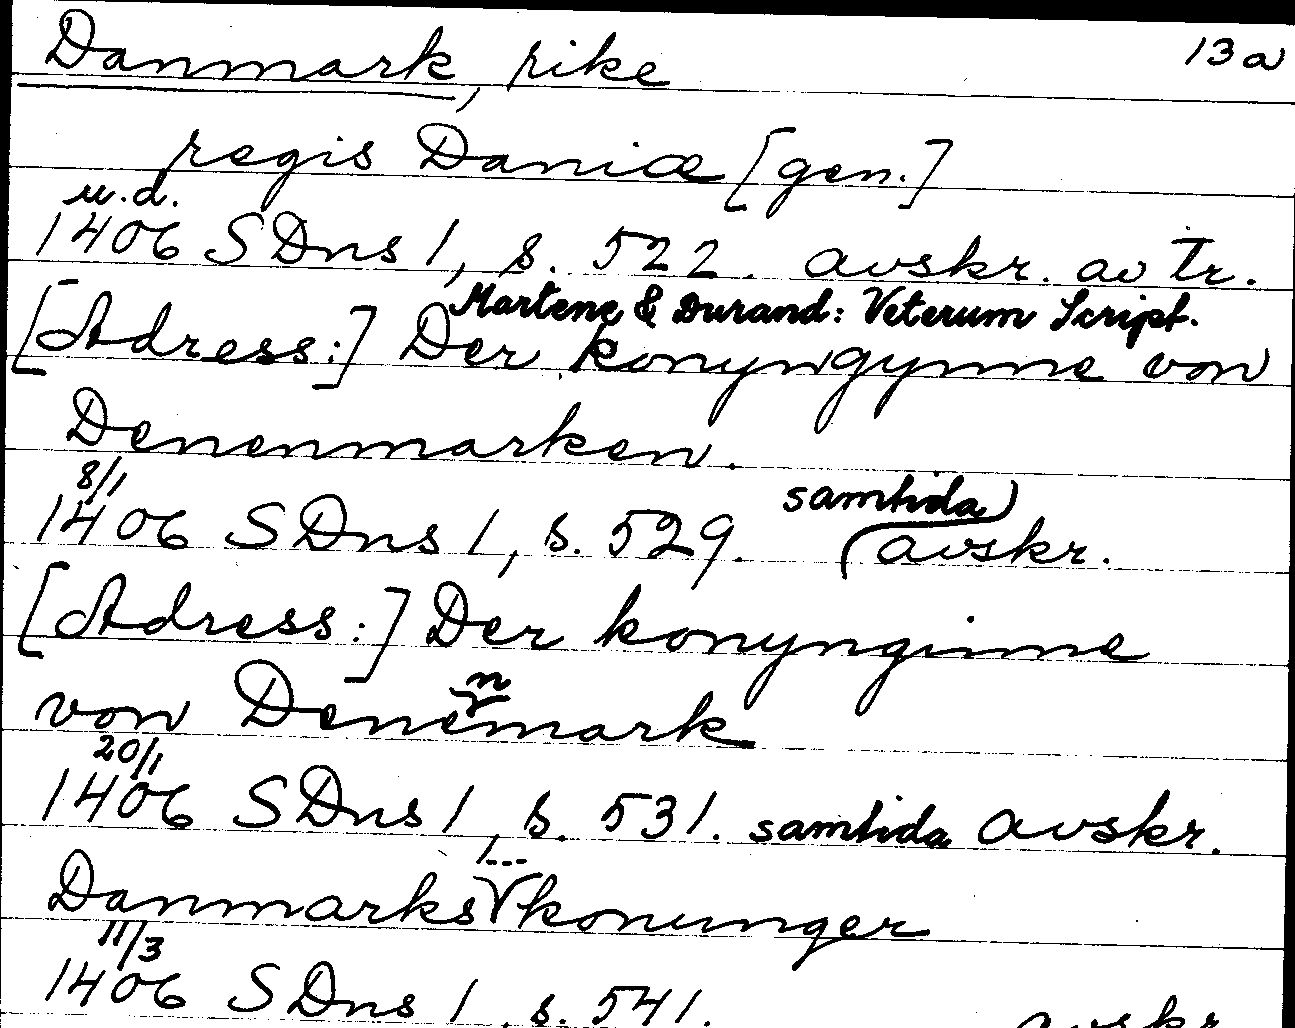 Danmark, rike 13a
regis Daniæ [gen.]
u.d.
1406 SDns 1, s. 522. avskr. av Tr.
Martene & Durand: Veterum Script.
[Adress:] Der konyngynne von
Denenmarken.
8/1
1406 SDns 1, s. 529. samtida avskr.
[Adress:] Der konynginne
von Denenmark
20/1
1406 SDns 1, s. 531. samtida avskr.
Danmarks [--- konunger
11/3
1406 SDns 1, s. 541. avskr